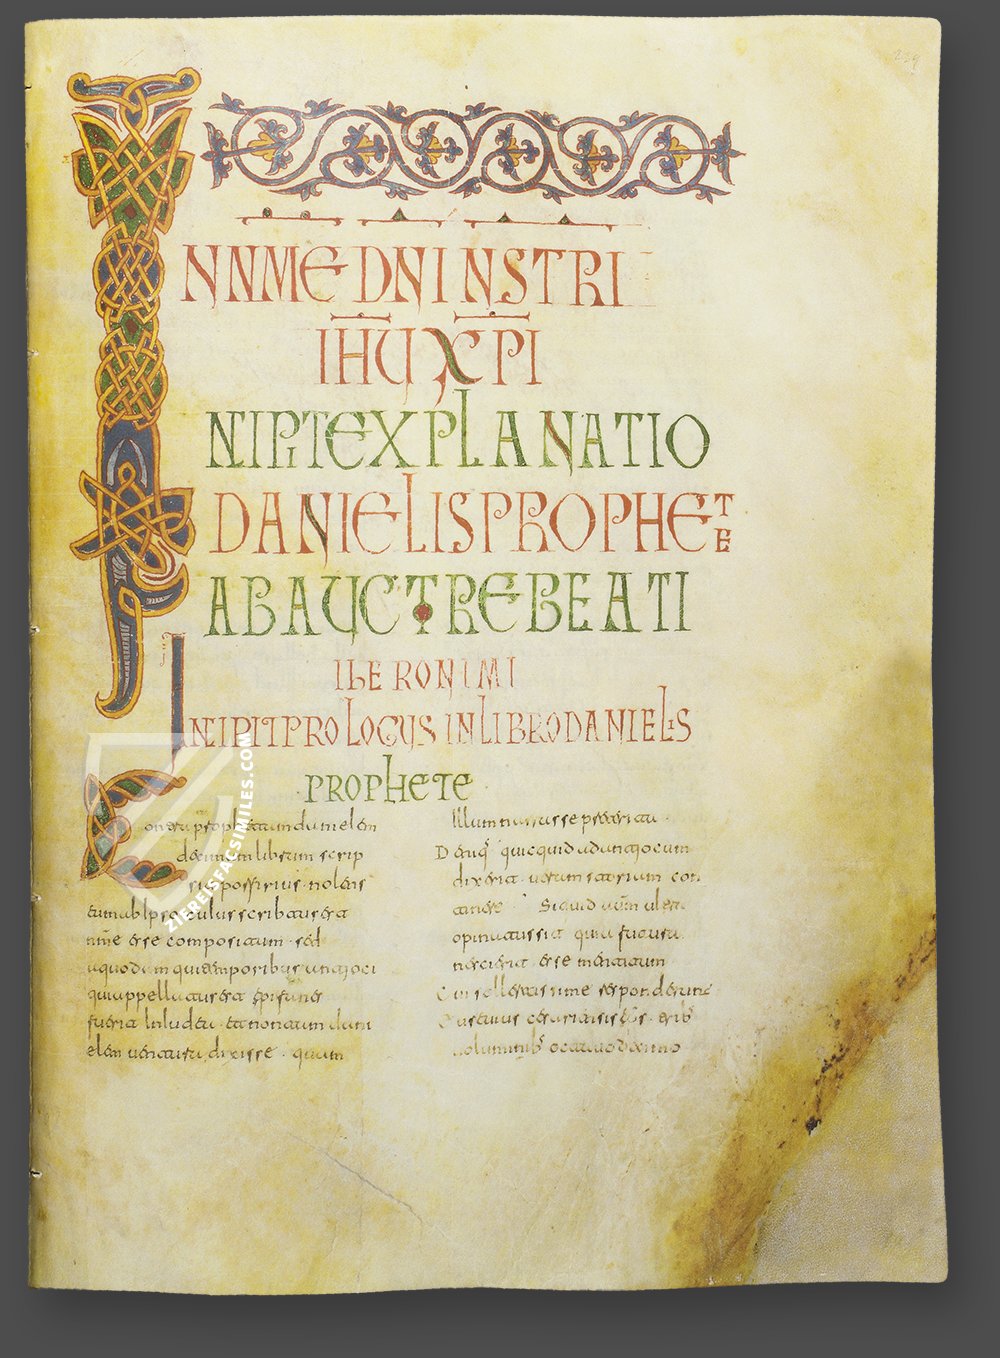 239
IN NME DNI NSTRI
IHU XPI
INIPIT EXPLANATIO
DANIELIS PROPHETE
AB AUCTRE BEATI
IHERONIMI
INIPIT PROLOGUS IN LIBRO DANIELIS
PROPHETE
Contra prophetam danielem
decimum librum scrip
sit porfirius nolens
eum ab ipso cuius scribtus est
nme esse compositum sed
a quodam qui temporibus antioci
qui appellatus est epifanes
fuerit in iudea et non tam dani
elem ventura dixisse quam
illum narrasse preterita
Denq quicquid ad antiocum
dixerit veram storiam con
tinere Siquid aum ultra
opinatus sit quia futura
nescierit esse mentitum
Cui sollertissime responderunt
voluminib
ZIEREISFACSIMILES.COM